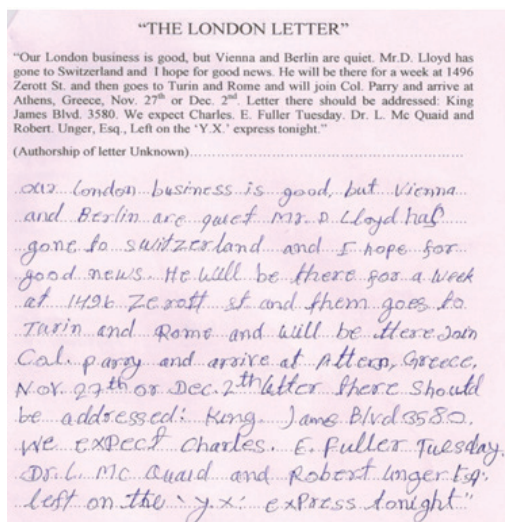 "THE LONDON LETTER"
"Our London business is good, but Vienna and Berlin are quiet. Mr.D. Lloyd has
gone to Switzerland and I hope for good news. He will be there for a week at 1496
Zerott St. and then goes to Turin and Rome and will join Col. Parry and arrive at
Athens, Greece, Nov. 27th or Dec. 2nd. Letter there should be addressed: King
James Blvd. 3580. We expect Charles. E. Fuller Tuesday. Dr. L. Mc Quaid and
Robert. Unger, Esq., Left on the 'Y.X.' express tonight."
(Authorship of letter Unknown)....................................................................
our London business is good, but Vienna
and Berlin are quiet Mr. D. Lloyd has
gone to switzerland and I hope for
good news. He will be there for a week
at 1496 Zerott st and them goes to
Turin and Rome and will be there Join
Col. parry and arrive at Attern, Greece,
Nov. 27th or Dec. 2th letter there should
be addressed: King. Jame Blvd 3580.
We expect Charles. E. Fuller Tuesday.
Dr. L. Mc Quaid and Robert Unger Esq.
left on the 'y.x.' exPress tonight"